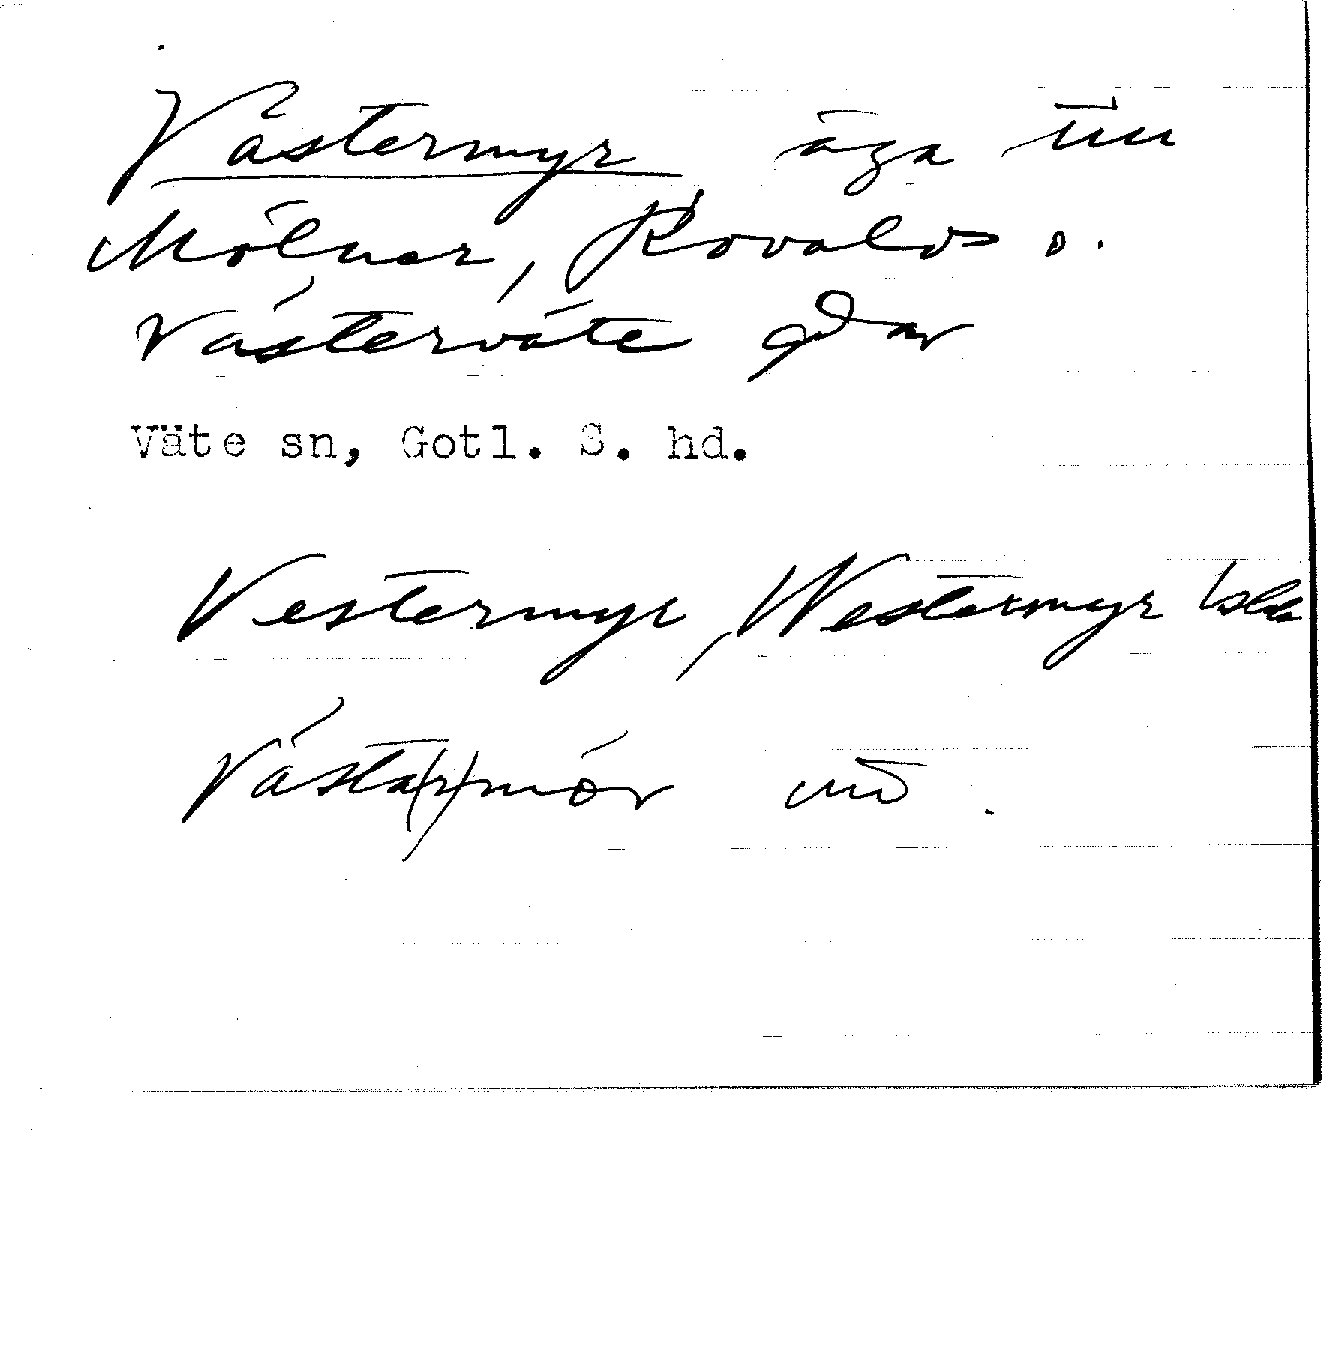 Västermyr äga till
Mölner, Rovalds o.
Västerväte gdar
Väte sn, Gotl. S. hd.
Vestermyr, Westermyr
Västa(r)mör